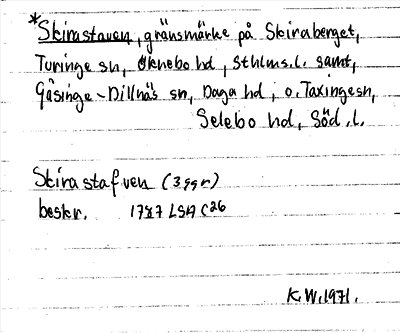 *Skirastaven, gränsmärke på Skiraberget,
Turinge sn, Öknebo hd, Sthlms.l. samt,
Gåsinge-Dillnäs sn, Daga hd, o. Taxinge sn,
Selebo hd, Söd.l.
Skirastafven (3 ggr)
beskr. 1787 LSA C26
K.W. 1971.